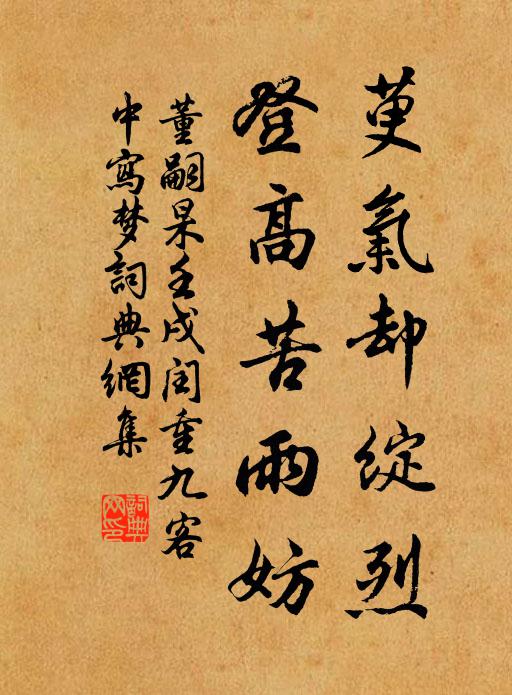 萸氣却綻烈
登高苦雨妨
董嗣杲壬戌閏重九客
中寫梦詞典網集
詞典
网印